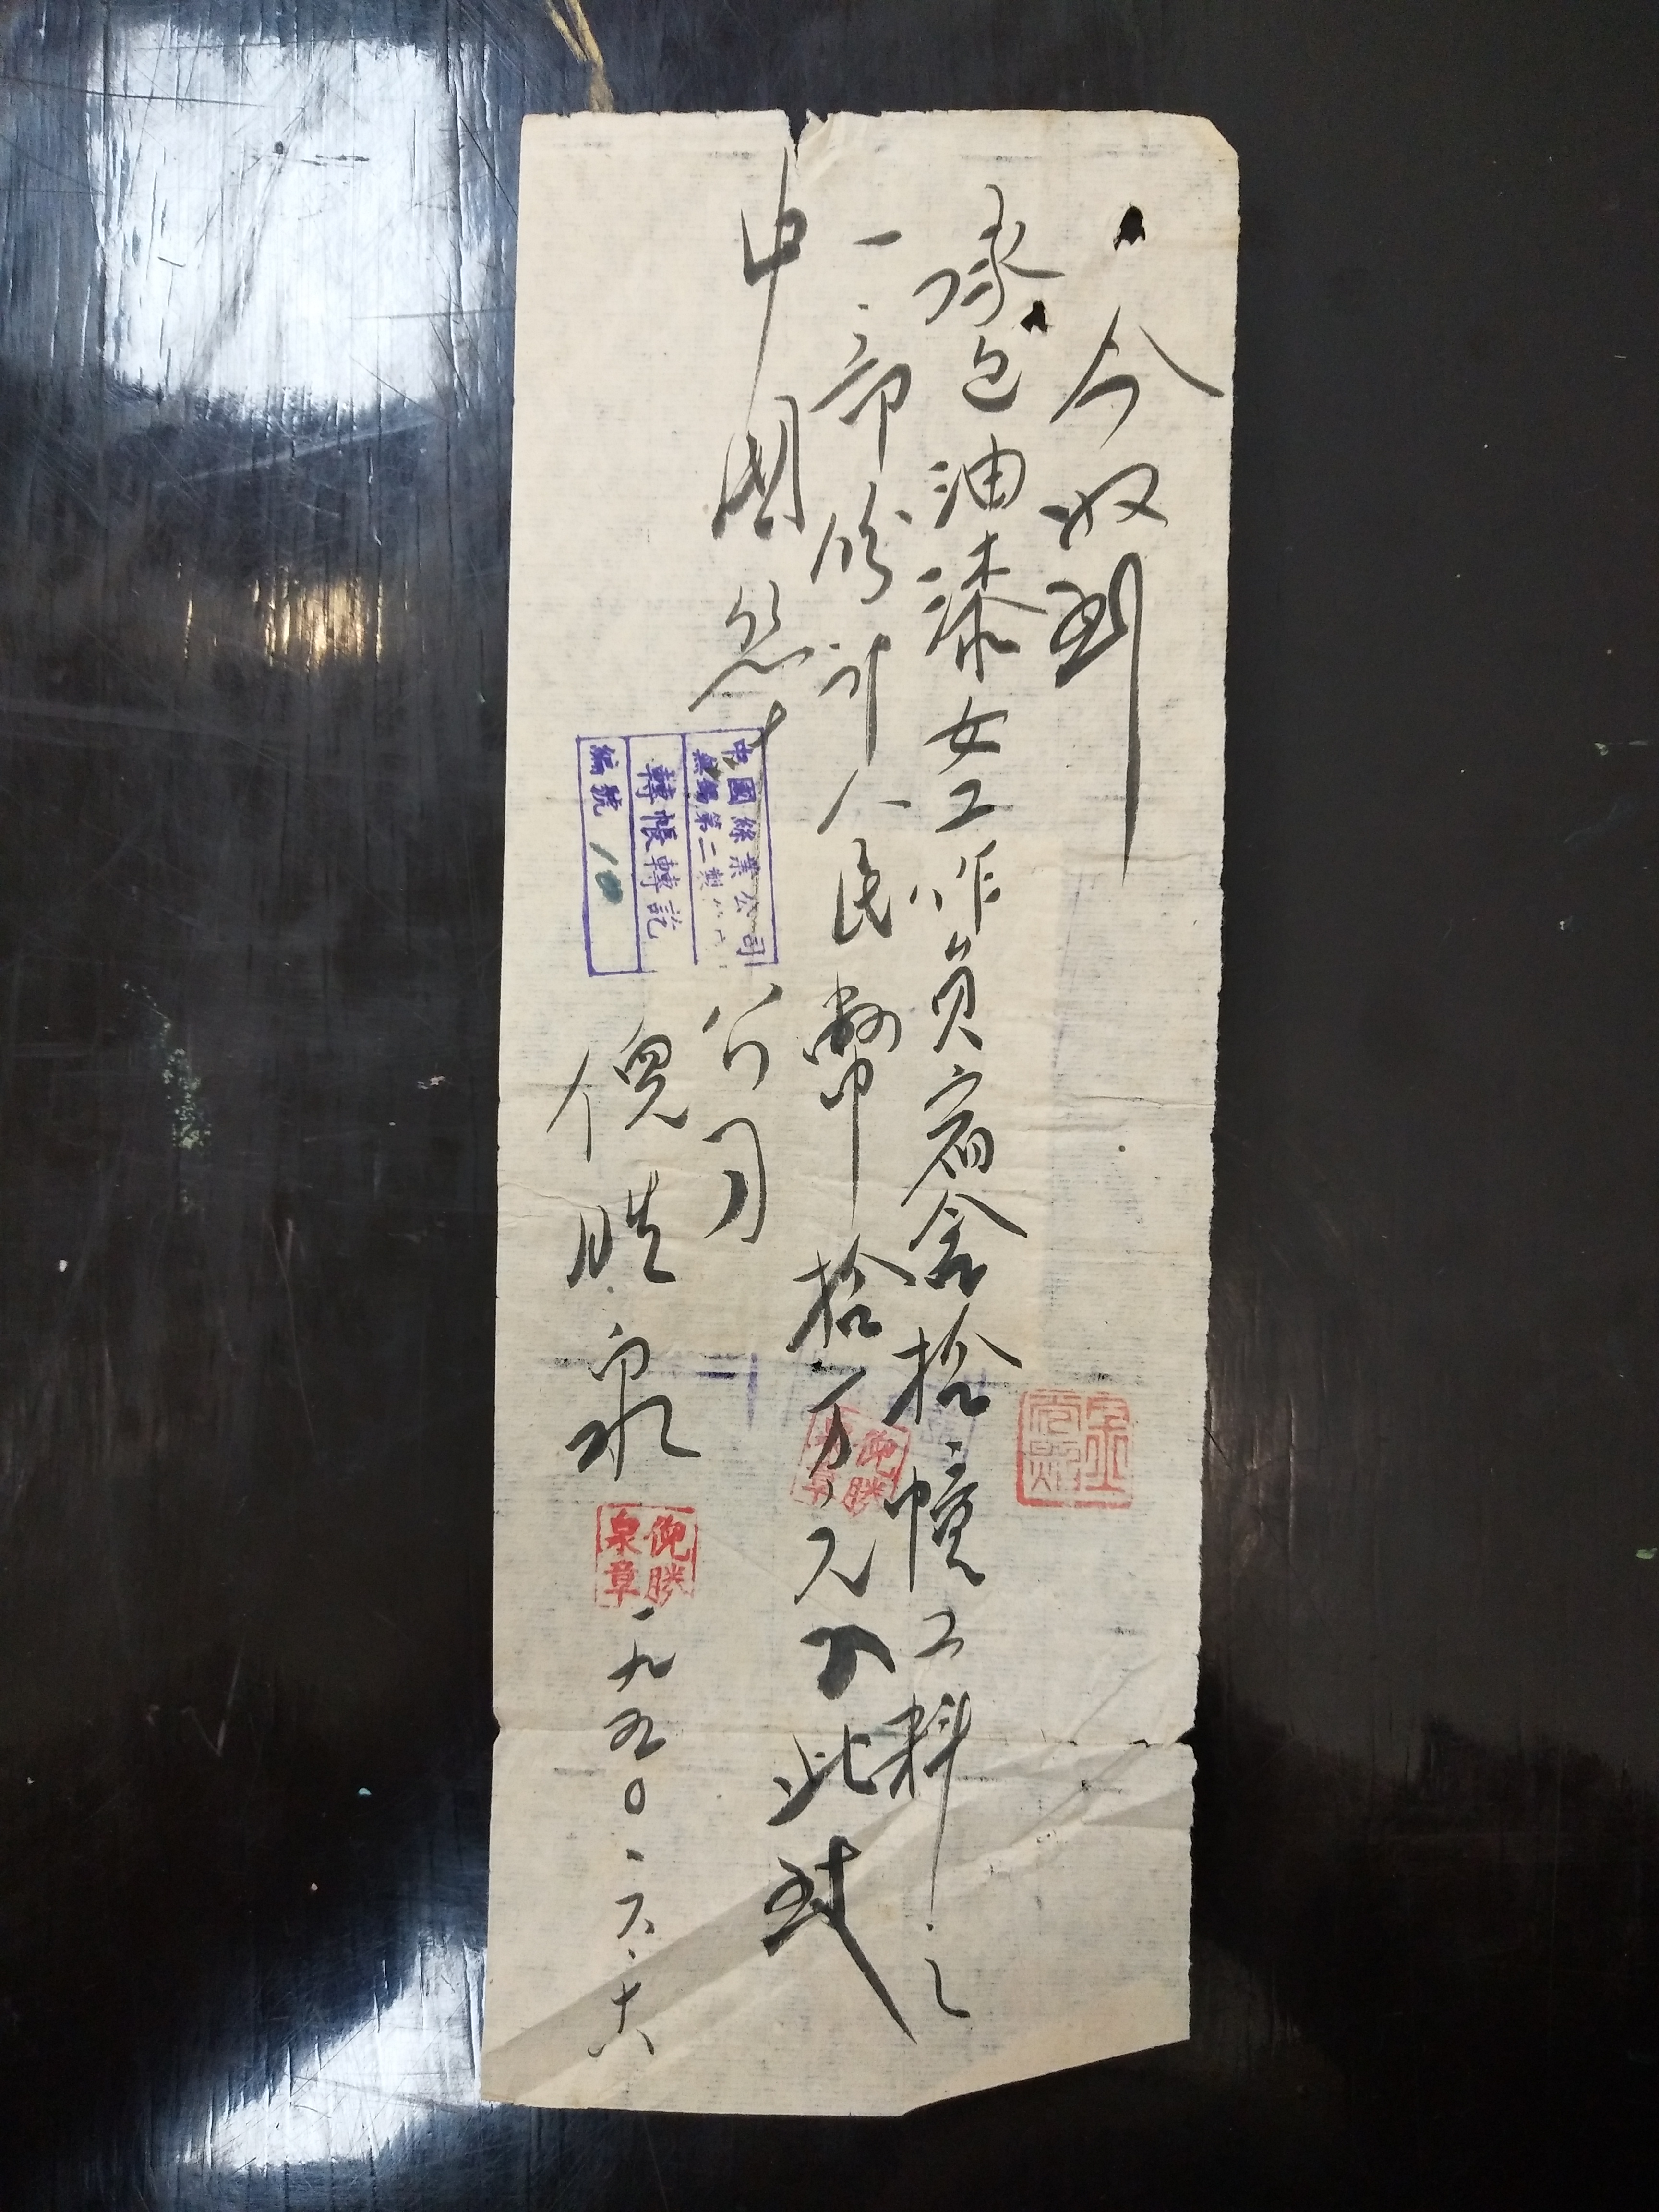 今收到
承包油漆女工作員宿舍拾幢工料之
一部份計人民幣拾万元正此致
中國絲業公司
倪胜泉
一九五〇.六.十六
中國絲業公司
無錫第二製
轉帳轉訖
編號 10
倪勝泉章
倪勝